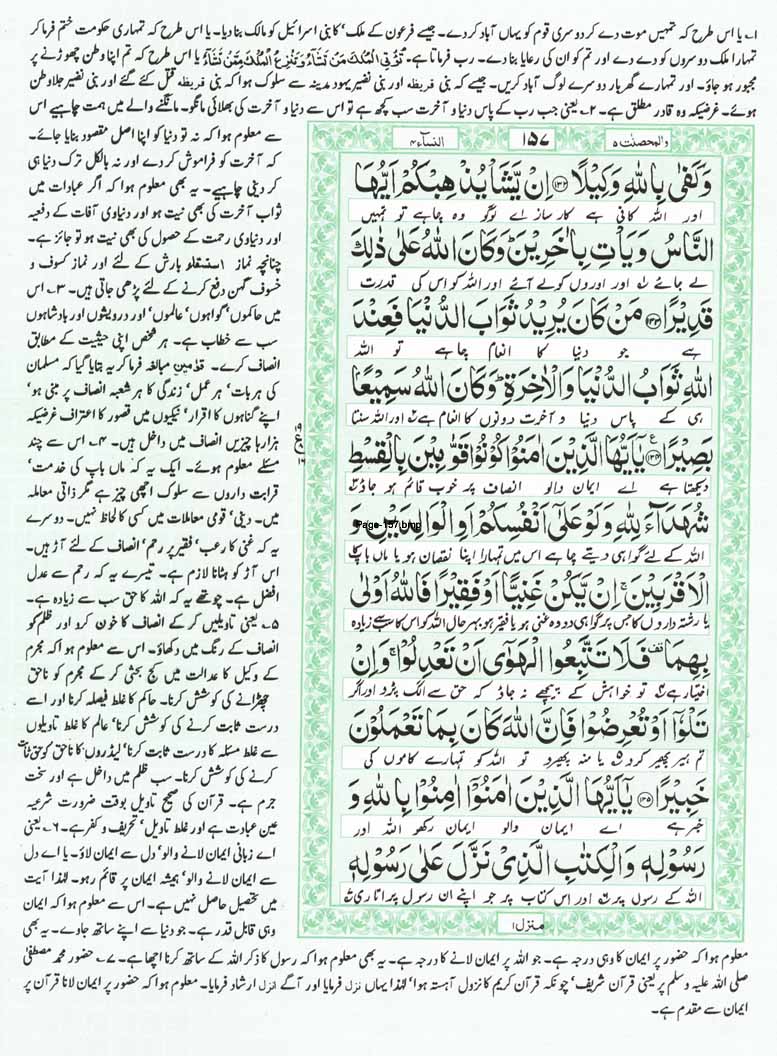 ۱۔ یا اس طرح کہ تمہیں موت دے کر دوسری قوم کو یہاں آباد کر دے۔ جیسے فرعون کے ملک‘ کا بنی اسرائیل کو مالک بنا دیا۔ یا اس طرح کہ تمہاری حکومت ختم فرما کر
تمہارا ملک دوسروں کو دے دے اور تم کو ان کی رعایا بنا دے۔ رب فرماتا ہے۔ تُؤْتِی الْمُلْكَ مَنْ تَشَآءُ وَتَنْزِعُ الْمُلْكَ مِمَّنْ تَشَآءُ یا اس طرح کہ تم اپنا وطن چھوڑنے پر
مجبور ہو جاؤ۔ اور تمہارے گھر بار دوسرے لوگ آباد کریں۔ جیسے کہ بنی قریظہ اور بنی نضیر یہود مدینہ سے سلوک ہوا کہ بنی قریظہ قتل کئے گئے اور بنی نضیر جلا وطن
ہوئے۔ غرضیکہ وہ قادر مطلق ہے۔ ۲۔ یعنی جب رب کے پاس دنیا و آخرت سب کچھ ہے تو اس سے دنیا و آخرت کی بھلائی مانگو۔ مانگنے والے میں ہمت چاہیے اس
والمحصنٰت ۵
۱۵۷
النسآء ۴
وَكَفٰی بِاللّٰهِ وَكِیْلًا ۝۱۳۲ اِنْ یَّشَاْ یُذْهِبْكُمْ اَیُّهَا
اور اللہ کافی ہے کارساز اے لوگو وہ چاہے تو تمہیں
النَّاسُ وَیَاْتِ بِاٰخَرِیْنَ ؕ وَكَانَ اللّٰهُ عَلٰی ذٰلِكَ
لے جائے اور اوروں کو لے آئے اور اللہ کو اس کی قدرت
قَدِیْرًا ۝۱۳۳ مَنْ كَانَ یُرِیْدُ ثَوَابَ الدُّنْیَا فَعِنْدَ
ہے جو دنیا کا انعام چاہے تو اللہ
اللّٰهِ ثَوَابُ الدُّنْیَا وَالْاٰخِرَةِ ؕ وَكَانَ اللّٰهُ سَمِیْعًۢا
ہی کے پاس دنیا و آخرت دونوں کا انعام ہے اور اللہ سنتا
بَصِیْرًا ۝۱۳۴ یٰۤاَیُّهَا الَّذِیْنَ اٰمَنُوْا كُوْنُوْا قَوّٰمِیْنَ بِالْقِسْطِ
دیکھتا ہے اے ایمان والو انصاف پر خوب قائم ہو جاؤ
شُهَدَآءَ لِلّٰهِ وَلَوْ عَلٰۤی اَنْفُسِكُمْ اَوِ الْوَالِدَیْنِ وَ
Page-157.bmp
اللہ کے لئے گواہی دیتے چاہے اس میں تمہارا اپنا نقصان ہو یا ماں باپ کا
الْاَقْرَبِیْنَ ۚ اِنْ یَّكُنْ غَنِیًّا اَوْ فَقِیْرًا فَاللّٰهُ اَوْلٰی
یا رشتہ داروں کا جس پر گواہی دو وہ غنی ہو یا فقیر ہو بہرحال اللہ کو اس کا سب سے زیادہ
بِهِمَا ۫ فَلَا تَتَّبِعُوا الْهَوٰۤی اَنْ تَعْدِلُوْا ۚ وَاِنْ
اختیار ہے تو خواہش کے پیچھے نہ جاؤ کہ حق سے الگ پڑو اور اگر
تَلْوٗۤا اَوْ تُعْرِضُوْا فَاِنَّ اللّٰهَ كَانَ بِمَا تَعْمَلُوْنَ
تم ہیر پھیر کرو یا منہ پھیرو تو اللہ کو تمہارے کاموں کی
خَبِیْرًا ۝۱۳۵ یٰۤاَیُّهَا الَّذِیْنَ اٰمَنُوْۤا اٰمِنُوْا بِاللّٰهِ وَ
خبر ہے اے ایمان والو ایمان رکھو اللہ اور
رَسُوْلِهٖ وَالْكِتٰبِ الَّذِیْ نَزَّلَ عَلٰی رَسُوْلِهٖ
اللہ کے رسول پر اور اس کتاب پر جو اپنے ان رسول پر اتاری
منزل ۱
سے معلوم ہوا کہ نہ تو دنیا کو اپنا اصل مقصود بنایا جائے۔
کہ آخرت کو فراموش کر دے اور نہ بالکل ترک دنیا ہی
کر دینی چاہیے۔ یہ بھی معلوم ہوا کہ اگر عبادات میں
ثواب آخرت کی بھی نیت ہو اور دنیاوی آفات کے دفعیہ
اور دنیاوی رحمت کے حصول کی بھی نیت ہو تو جائز ہے۔
چنانچہ نماز استسقاو بارش کے لئے اور نماز کسوف و
خسوف گہن دفع کرنے کے لئے پڑھی جاتی ہیں۔ ۳۔ اس
میں حاکموں‘ گواہوں‘ عالموں‘ اور درویشوں اور بادشاہوں
سب سے خطاب ہے۔ ہر شخص اپنی حیثیت کے مطابق
انصاف کرے۔ قوّٰمین مبالغہ فرما کر یہ بتایا گیا کہ مسلمان
کی ہر بات‘ ہر عمل‘ زندگی کا ہر شعبہ انصاف پر مبنی ہو‘
اپنے گناہوں کا اقرار‘ نیکیوں میں قصور کا اعتراف غرضیکہ
ہزارہا چیزیں انصاف میں داخل ہیں۔ ۴۔ اس سے چند
مسئلے معلوم ہوئے۔ ایک یہ کہ ماں باپ کی خدمت‘
قرابت داروں سے سلوک اچھی چیز ہے مگر ذاتی معاملہ
میں۔ دینی‘ قومی معاملات میں کسی کا لحاظ نہیں۔ دوسرے
یہ کہ غنی کا رعب‘ فقیر پر رحم‘ انصاف کے لئے آڑ ہیں۔
اس آڑ کو ہٹانا لازم ہے۔ تیسرے یہ کہ رحم سے عدل
افضل ہے۔ چوتھے یہ کہ اللہ کا حق سب سے زیادہ ہے۔
۵۔ یعنی تاویلیں کر کے انصاف کا خون کرو اور ظلم کو
انصاف کے رنگ میں دکھاؤ۔ اس سے معلوم ہوا کہ مجرم
کے وکیل کا عدالت میں کج بحثی کر کے مجرم کو ناحق
چھڑانے کی کوشش کرنا۔ حاکم کا غلط فیصلہ کرنا اور اسے
درست ثابت کرنے کی کوشش کرنا‘ عالم کا غلط تاویلوں
سے غلط مسئلہ کا درست ثابت کرنا‘ لیڈروں کا ناحق کو حق ثابت
کرنے کی کوشش کرنا۔ سب ظلم میں داخل ہے اور سخت
جرم ہے۔ قرآن کی صحیح تاویل بوقت ضرورت شرعیہ
عین عبادت ہے اور غلط تاویل‘ تحریف و کفر ہے۔ ۶۔ یعنی
اے زبانی ایمان لانے والو‘ دل سے ایمان لاؤ۔ یا اے دل
سے ایمان لانے والو‘ ہمیشہ ایمان پر قائم رہو۔ لہٰذا آیت
میں تحصیل حاصل نہیں ہے۔ اس سے معلوم ہوا کہ ایمان
وہی قابل قدر ہے۔ جو دنیا سے اپنے ساتھ جاوے۔ یہ بھی
معلوم ہوا کہ حضور پر ایمان کا وہی درجہ ہے۔ جو اللہ پر ایمان لانے کا درجہ ہے۔ یہ بھی معلوم ہوا کہ رسول کا ذکر اللہ کے ساتھ کرنا اچھا ہے۔ ۷۔ حضور محمد مصطفیٰ
صلی اللہ علیہ وسلم پر یعنی قرآن شریف‘ چونکہ قرآن کریم کا نزول آہستہ ہوا‘ لہٰذا یہاں نزل فرمایا اور آگے انزل ارشاد فرمایا۔ معلوم ہوا کہ حضور پر ایمان لانا قرآن پر
ایمان سے مقدم ہے۔